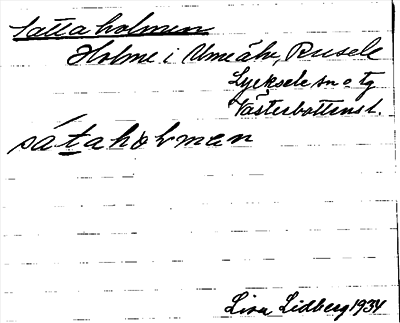 Sattaholmen
Holme i Umeälv, Rusele
Lycksele sn o tg
Västerbottens l.
sátahoлmɘn
Lisa Lidberg 1934